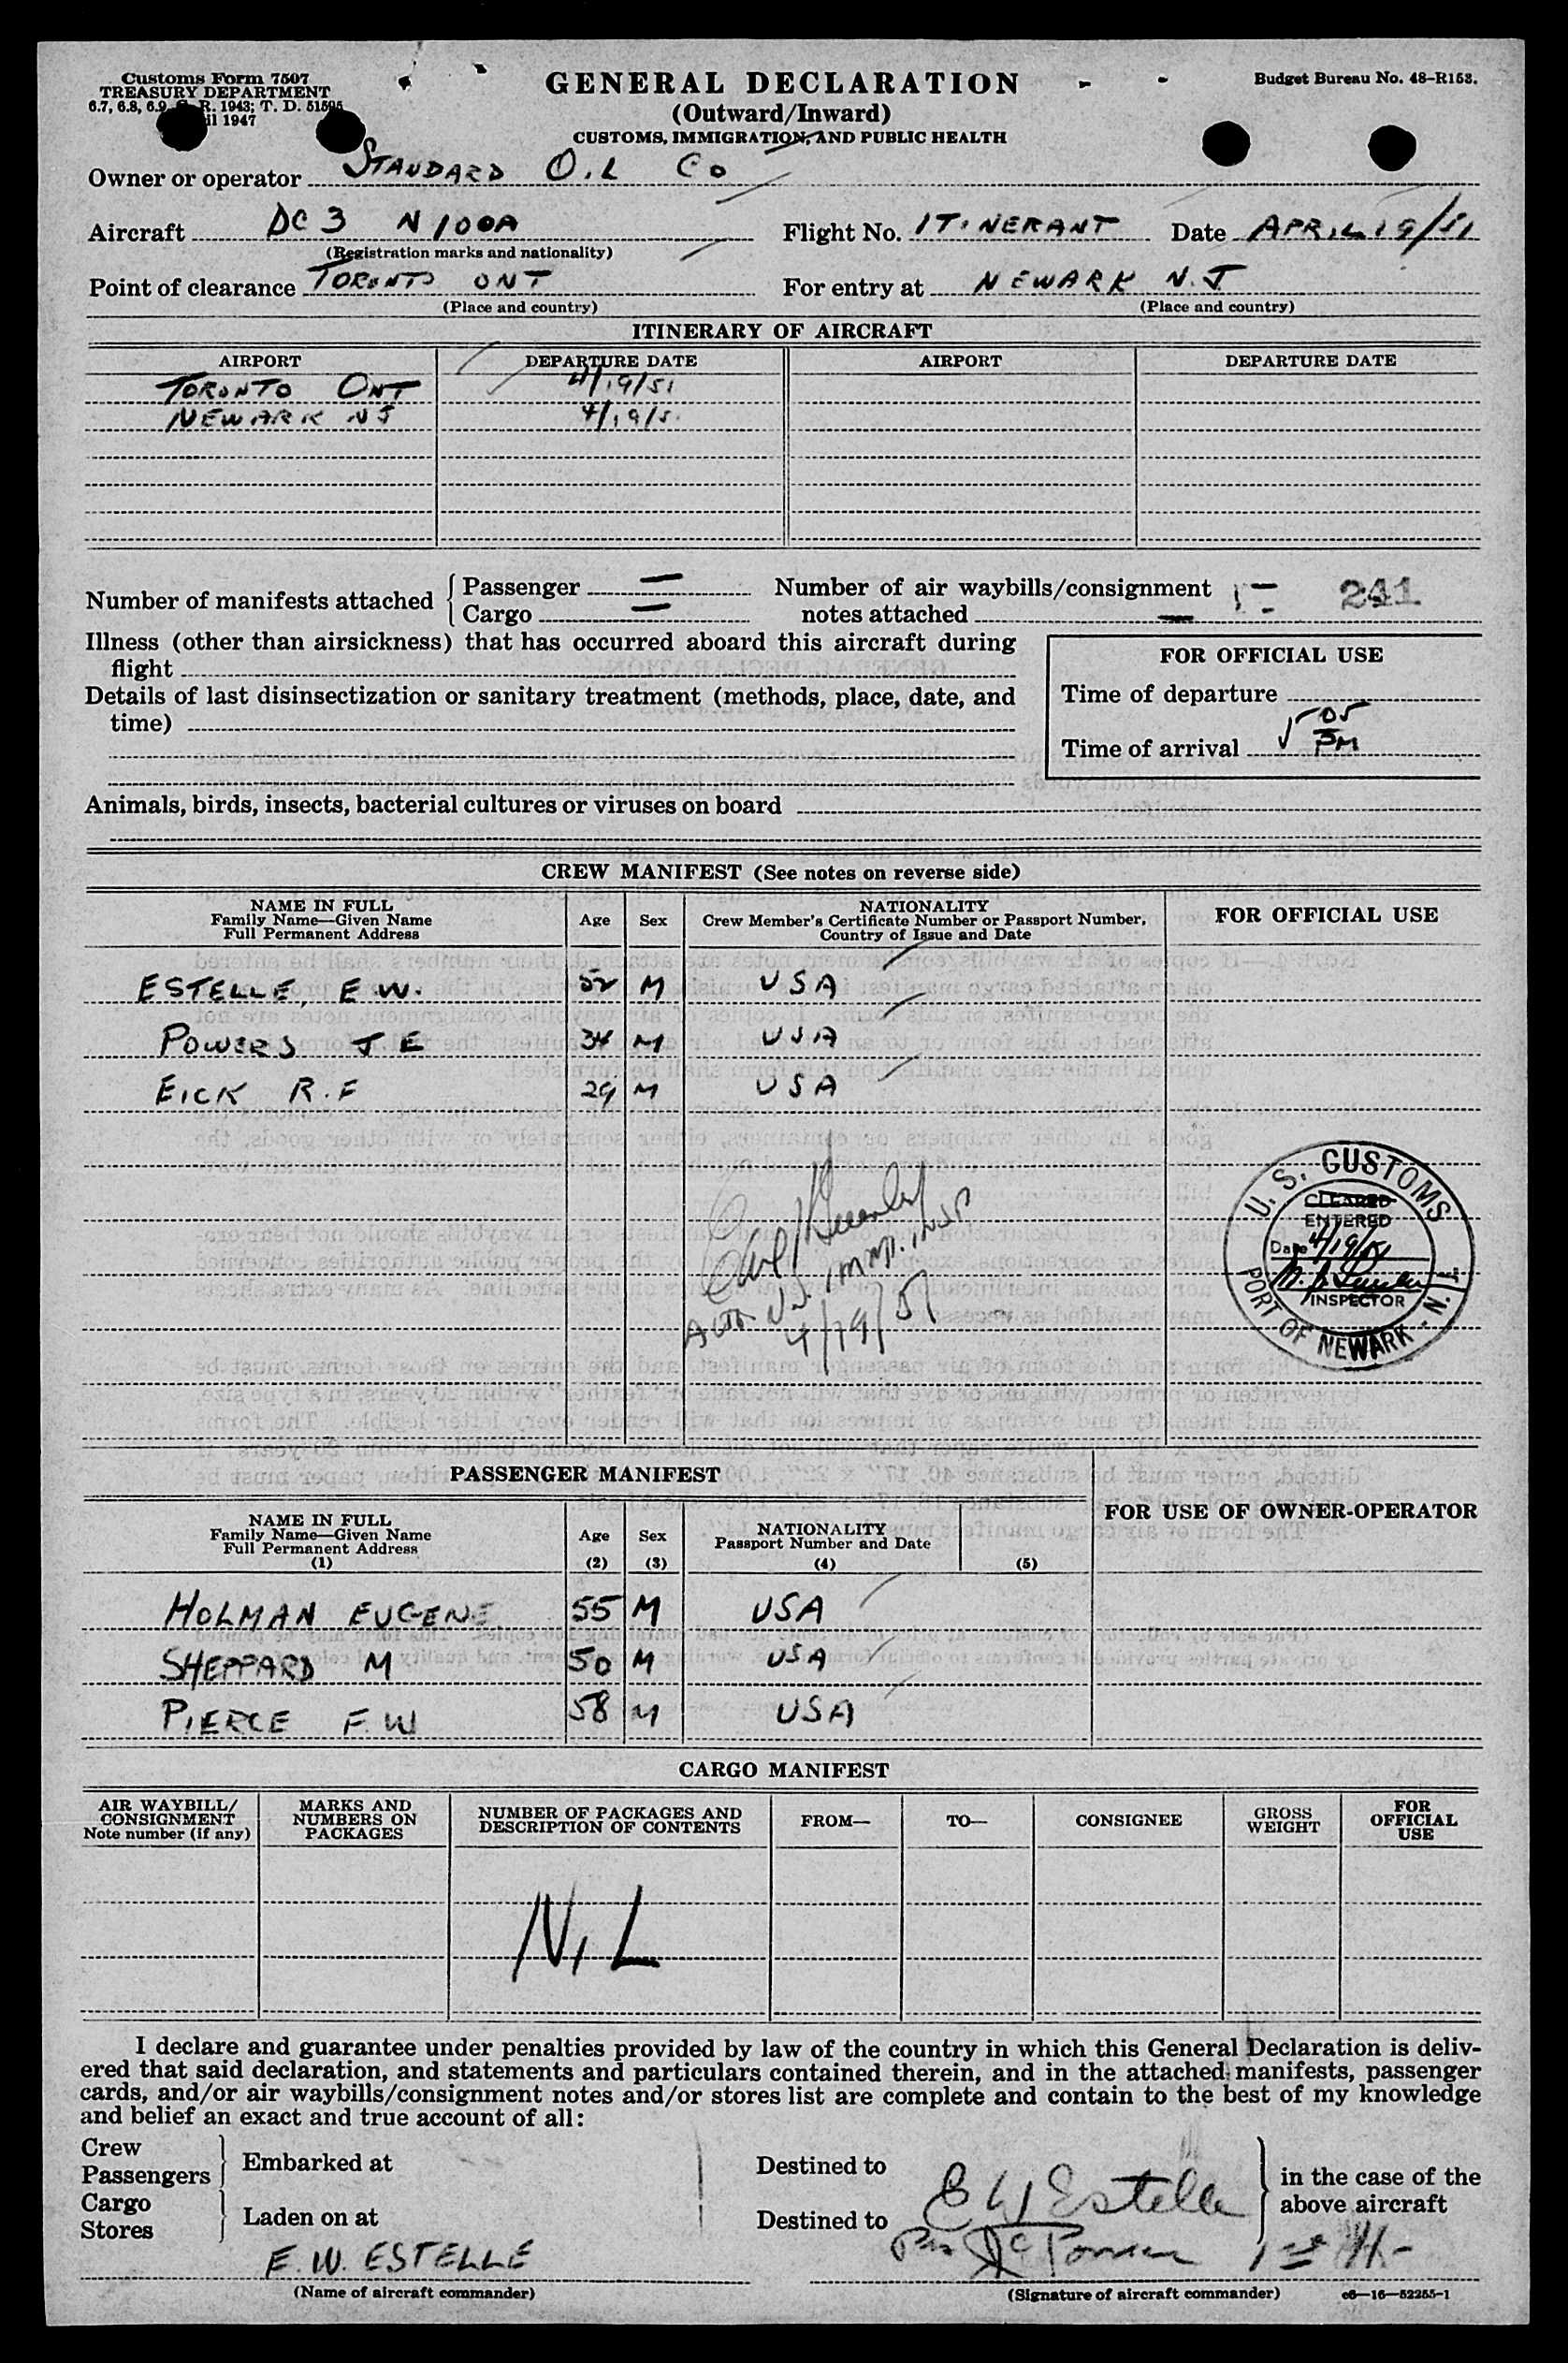 Customs Form 7507
TREASURY DEPARTMENT
6.7, 6.8, 6.9, C. R. 1943; T. D. 51595
1947
GENERAL DECLARATION
(Outward/Inward)
CUSTOMS, IMMIGRATION, AND PUBLIC HEALTH
Budget Bureau No. 48-R153.
Owner or operator STANDARD OIL CO
Aircraft DC 3 N100A
(Registration marks and nationality)
Flight No. ITINERANT Date APRIL 19/51
Point of clearance TORONTO ONT
(Place and country)
For entry at NEWARK N.J
(Place and country)
ITINERARY OF AIRCRAFT
AIRPORT DEPARTURE DATE AIRPORT DEPARTURE DATE
TORONTO ONT 4/19/51
NEWARK NJ 4/19/5
Number of manifests attached
Passenger —
Cargo —
Number of air waybills/consignment
notes attached —
241
Illness (other than airsickness) that has occurred aboard this aircraft during
flight
Details of last disinsectization or sanitary treatment (methods, place, date, and
time)
FOR OFFICIAL USE
Time of departure
Time of arrival 505 PM
Animals, birds, insects, bacterial cultures or viruses on board
CREW MANIFEST (See notes on reverse side)
NAME IN FULL
Family Name—Given Name
Full Permanent Address
Age
Sex
NATIONALITY
Crew Member's Certificate Number or Passport Number,
Country of Issue and Date
FOR OFFICIAL USE
ESTELLE, E.W. 52 M USA
POWERS J E 34 M USA
EICK R.F 29 M USA
IMM. INSP
4/19/51
U.S. CUSTOMS
CLEARED
ENTERED
Date 4/19/51
INSPECTOR
PORT OF NEWARK, N.J.
PASSENGER MANIFEST
NAME IN FULL
Family Name—Given Name
Full Permanent Address
(1)
Age
(2)
Sex
(3)
NATIONALITY
Passport Number and Date
(4)
(5)
FOR USE OF OWNER-OPERATOR
HOLMAN EUGENE 55 M USA
SHEPPARD M 50 M USA
PIERCE F.W 58 M USA
CARGO MANIFEST
AIR WAYBILL/
CONSIGNMENT
Note number (if any)
MARKS AND
NUMBERS ON
PACKAGES
NUMBER OF PACKAGES AND
DESCRIPTION OF CONTENTS
FROM—
TO—
CONSIGNEE
GROSS
WEIGHT
FOR
OFFICIAL
USE
NIL
I declare and guarantee under penalties provided by law of the country in which this General Declaration is deliv-
ered that said declaration, and statements and particulars contained therein, and in the attached manifests, passenger
cards, and/or air waybills/consignment notes and/or stores list are complete and contain to the best of my knowledge
and belief an exact and true account of all:
Crew
Passengers
Embarked at
Destined to
Cargo
Stores
Laden on at
Destined to
in the case of the
above aircraft
E W Estelle
E.W. ESTELLE
(Name of aircraft commander)
(Signature of aircraft commander)
c6—16—52255-1